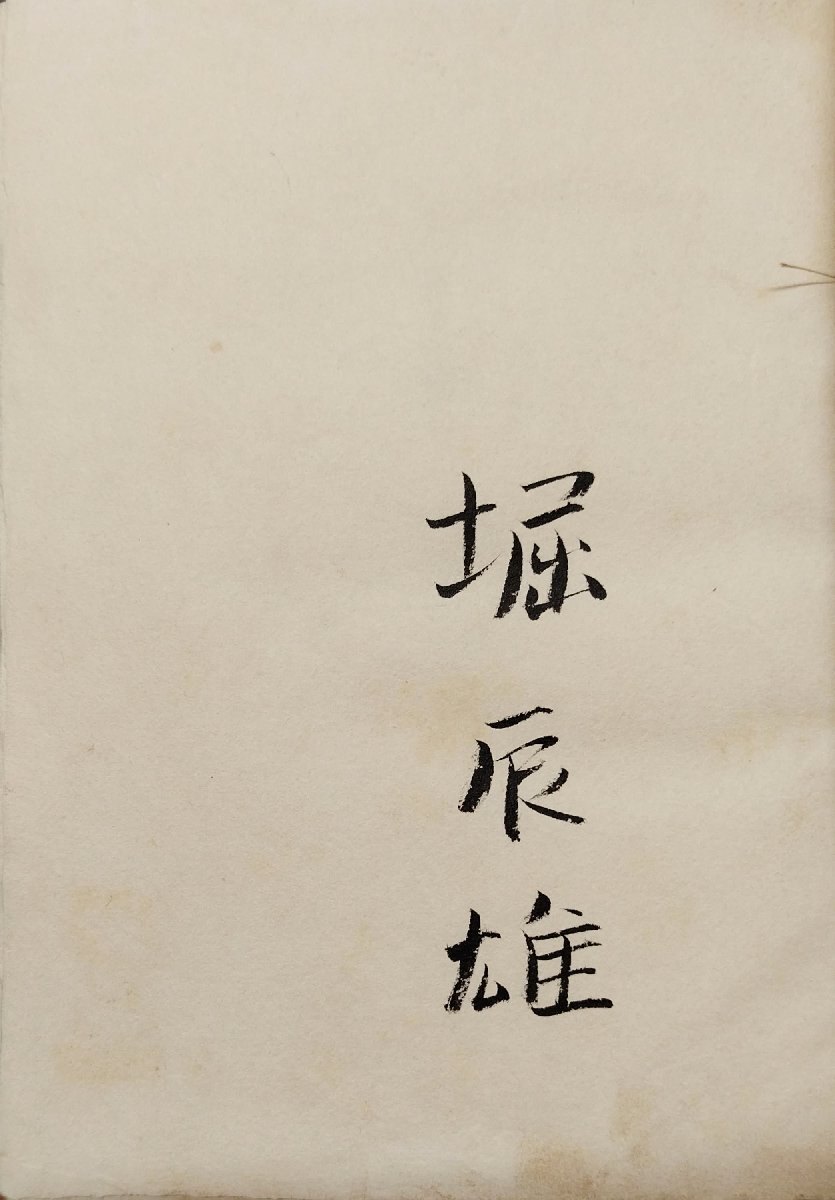 堀辰雄